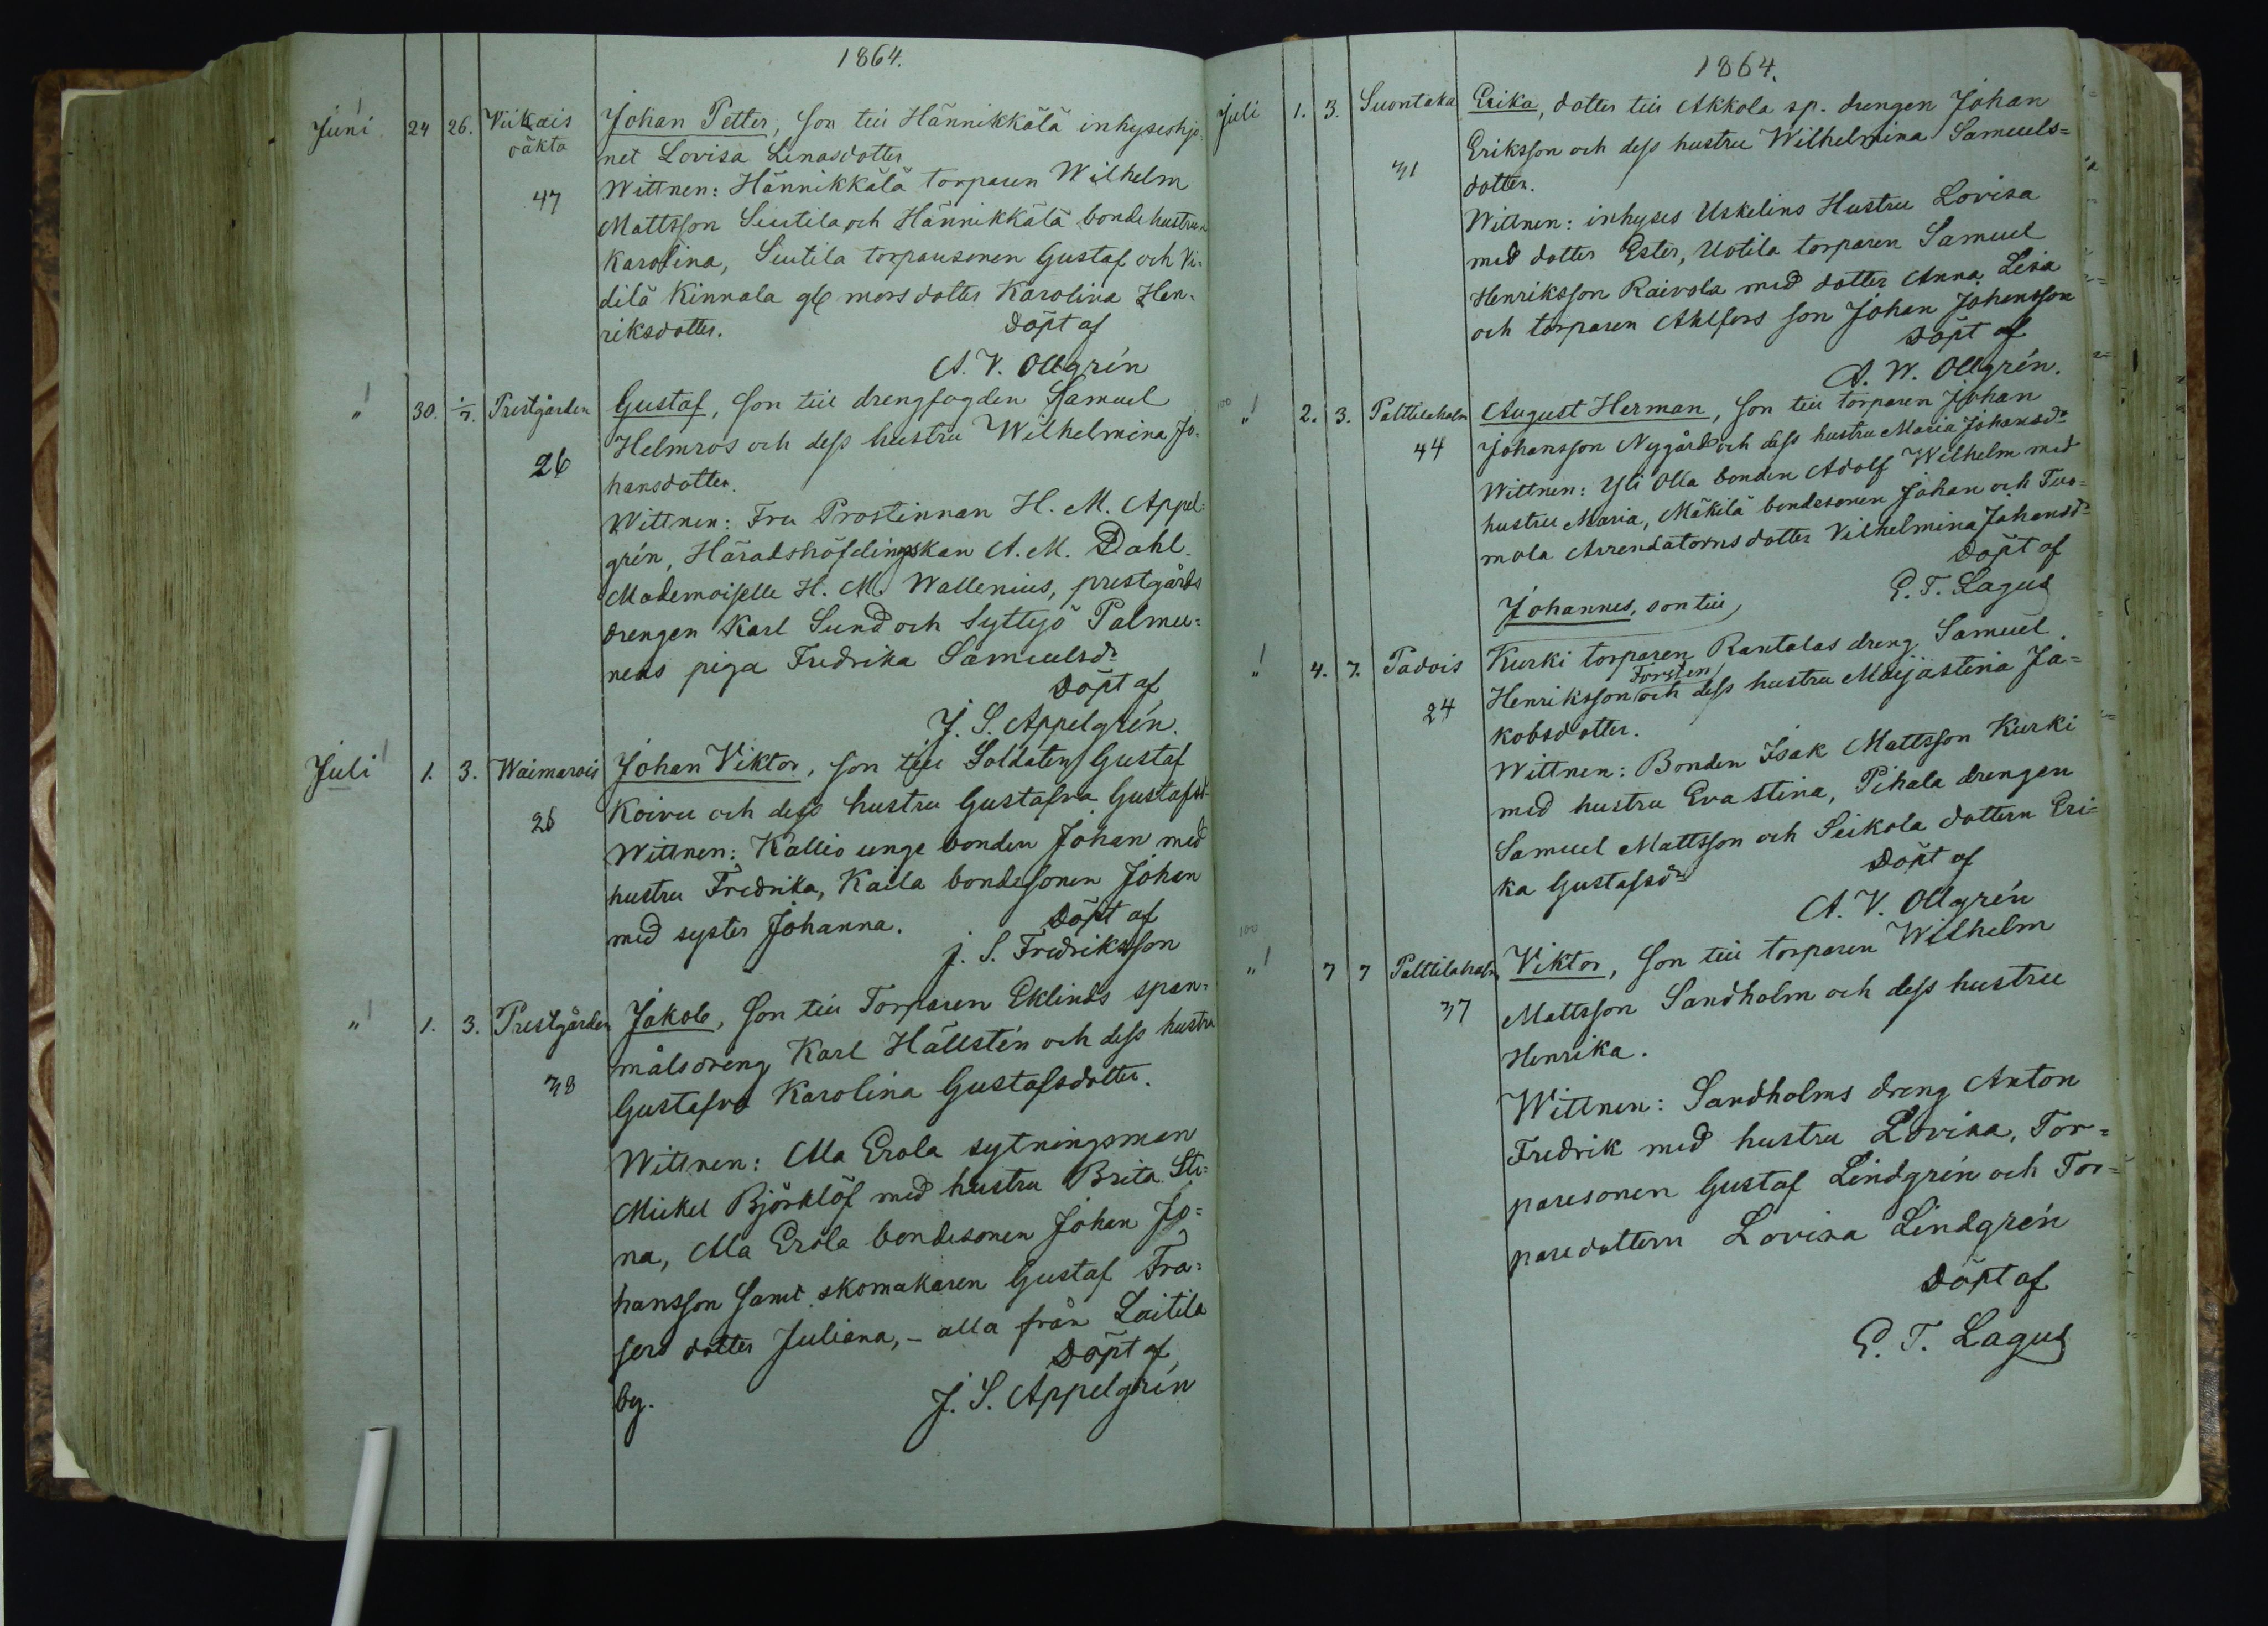 1864.
Juni 24 26. Viikais Johan Petter, son till Hännikkälä inhyseshjo-
oäkta net Lovisa Linasdotter
47 Wittnen: Hännikkälä torparen Wilhelm
Mattsson Siutila och Hännikkälä bondehustrun
Karolina, Siutila torparesonen Gustaf och Vi-
dilä Kinnala mors dotter Karolina Hen-
riksdotter. Döpt af
A. V. Ollgrén
" 30. 1/7. Prestgården Gustaf, son till drengfogden Samuel
Helmros och dess hustru Wilhelmina Jo-
26 hansdotter.
Wittnen: Fru Prostinnan H. M. Appel-
grén, Häradshöfdingskan A. M. Dahl.
Mademoiselle H. M. Wallenius, prestgårds
drengen Karl Sund och Syttyö Palmu-
nens piga Fredrika Samuelsdr
Döpt af
J. S. Appelgrén.
Juli 1. 3. Waimarois Johan Viktor, son till Soldaten Gustaf
Koivu och dess hustru Gustafva Gustafsd.
26 Wittnen: Kallio unge bonden Johan med
hustru Fredrika, Kaila bondesonen Johan
med syster Johanna. Döpt af
J. S. Fredriksson
" 1. 3. Prestgården Jakob, son till Torparen Eklinds span-
målsdreng Karl Hällstén och dess hustru
38 Gustafva Karolina Gustafsdotter.
Wittnen: Ala Erola sytningsman
Mickel Björklöf med hustru Brita Sti-
na, Ala Erola bondesonen Johan Jo-
hansson samt skomakaren Gustaf Fra-
sers dotter Juliana, – alla från Laitila
by. Döpt af
J. S. Appelgrén
1864.
Juli 1. 3. Suontaka Erika, dotter till Akkola sp. drengen Johan
Eriksson och dess hustru Wilhelmina Samuels=
31 dotter.
Wittnen: inhyses Uskelins Hustru Lovisa
med dotter Ester, Uotila torparen Samuel
Henriksson Raivola med dotter Anna Lisa
och torparen Ahlfors son Johan Johansson
Döpt af
A. W. Ollgrén.
100
" 2. 3. Palttilaholm August Herman, son till torparen Johan
44 Johansson Nygård och dess hustru Maria Johansdr
Wittnen: Yli Olla bonden Adolf Wilhelm med
hustru Maria, Mäkilä bondesonen Johan och Tuo=
mola Arrendatorns dotter Vilhelmina Johansdr
Döpt af
E. T. Lagus
Johannes, son till
" 4. 7. Padois Kurki torparen Rantalas dreng Samuel
Forstén
24 Henriksson och dess hustru Maijastina Ja=
kobsdotter.
Wittnen: Bonden Isak Mattsson Kurki
med hustru Eva Stina, Pihala drengen
Samuel Mattsson och Seikola dottern Eri=
ka Gustafsdr Döpt af
A. V. Ollgrén
100
" 7 7 Palttilaholm Viktor, son till torparen Wilhelm
37 Mattsson Sandholm och dess hustru
Henrika.
Wittnen: Sandholms dreng Anton
Fredrik med hustru Lovisa, Tor=
paresonen Gustaf Lindgrén och Tor=
paredottern Lovisa Lindgrén
Döpt af
E. T. Lagus